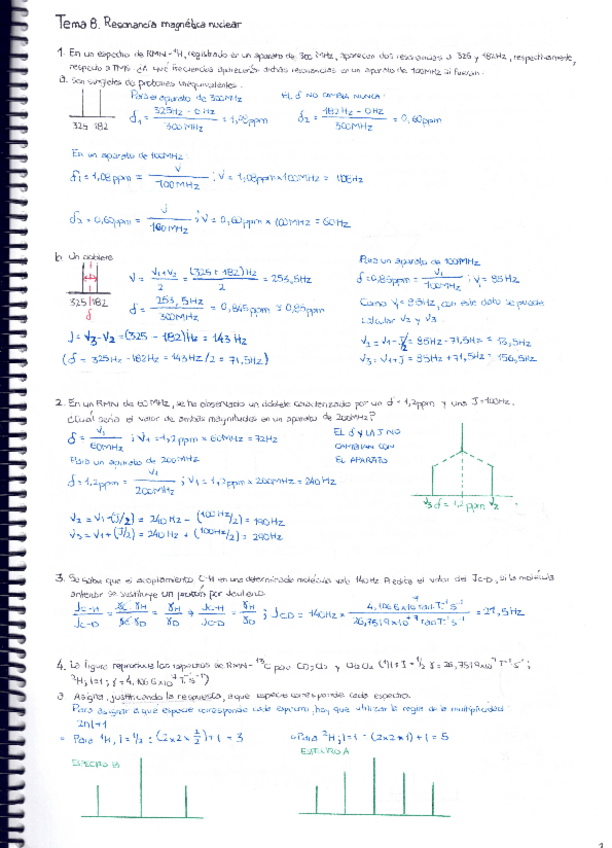 Tema 8. Resonancia magnética nuclear
1. En un espectro de RMN-¹H, registrado en un aparato de 300 MHz, aparecen dos resonancias a 325 y 182Hz, respectivamente,
respecto a TMS. ¿A qué frecuencias aparecerán dichas resonancias en un aparato de 100MHz si fueran:
a. Son singletes de protones inequivalentes.
Para el aparato de 300MHz
EL δ NO CAMBIA NUNCA:
325 182
δ₁ = 325Hz - 0Hz / 300MHz = 1,08ppm
δ₂ = 182Hz - 0Hz / 300MHz = 0,60ppm
En un aparato de 100MHz:
δ₁ = 1,08ppm = V / 100MHz ; V = 1,08ppm x 100MHz = 108Hz
δ₂ = 0,60ppm = / 100MHz ; V = 0,60ppm x 100MHz = 60Hz
b. Un doblete
325 182
δ
V = V₁+V₂ / 2 = (325 + 182)Hz / 2 = 253,5Hz
δ = 253,5Hz / 300MHz = 0,845ppm ≈ 0,85ppm
J = V₃-V₂ = (325 - 182)Hz = 143 Hz
(δ = 325Hz - 182Hz = 143Hz/2 = 71,5Hz)
Para un aparato de 100MHz
δ = 0,85ppm = V₁ / 100MHz ; V = 85Hz
Como V₁ = 85Hz, con este dato se puede
calcular V₂ y V₃
V₂ = V₁ - J/2 = 85Hz - 71,5Hz = 13,5Hz
V₃ = V₁ + J = 85Hz + 71,5Hz = 156,5Hz
2. En un RMN de 60 MHz, se ha observado un doblete caracterizado por un δ = 1,2ppm y una J = 100Hz.
¿Cuál sería el valor de ambas magnitudes en un aparato de 200MHz?
δ = V₁ / 60MHz ; V₁ = 1,2 ppm x 60MHz = 72Hz
EL δ Y LA J NO
CAMBIAN CON
EL APARATO
Para un aparato de 200MHz
δ = 1,2ppm = V₁ / 200MHz ; V₁ = 1,2ppm x 200MHz = 240Hz
V₃ δ = 1,2 ppm V₂
V₂ = V₁ - (J/2) = 240 Hz - (100Hz/2) = 190Hz
V₃ = V₁ + (J/2) = 240 Hz + (100Hz/2) = 290Hz
3. Se sabe que el acoplamiento C-H en una determinada molécula vale 140Hz. Predice el valor del Jc-D, si la molécula
anterior se sustituye un protón por deuterio.
Jc-H / Jc-D = γc γH / γc γD = γH / γD → Jc-H / Jc-D = γH / γD ; JCD = 140Hz x 4,1066x10⁷ rad T⁻¹s⁻¹ / 26,7519x10⁷ rad T⁻¹s⁻¹ = 21,5Hz
4. La figura reproduce los espectros de RMN-¹³C para CD₂Cl₂ y CH₂Cl₂ (¹H: I = 1/2 γ = 26,7519x10⁷ T⁻¹s⁻¹;
²H; I=1; γ = 4,1066 x10⁷ T⁻¹s⁻¹)
a. Asigna, justificando la respuesta, a que especie corresponde cada espectro.
Para asignar a qué especie corresponde cada espectro, hay que utilizar la regla de la multiplicidad
2nI+1
Para ¹H, I = 1/2 : (2x2x 1/2)+1 = 3
Para ²H; I=1 : (2x2x1)+1 = 5
ESPECTRO B
ESPECTRO A